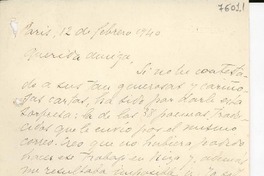 76011
Paris, 12 de febrero 1940
Querida amiga,
Si no he contesta-
do a sus tan generosas y cariño-
sas cartas, ha sido por darle esta
sorpresa: la de los 33 poemas traduci-
citos que le envío por el mismo
correo. Creo que no hubiera podido
hacer ese trabajo en Niza y, además
me resultaba